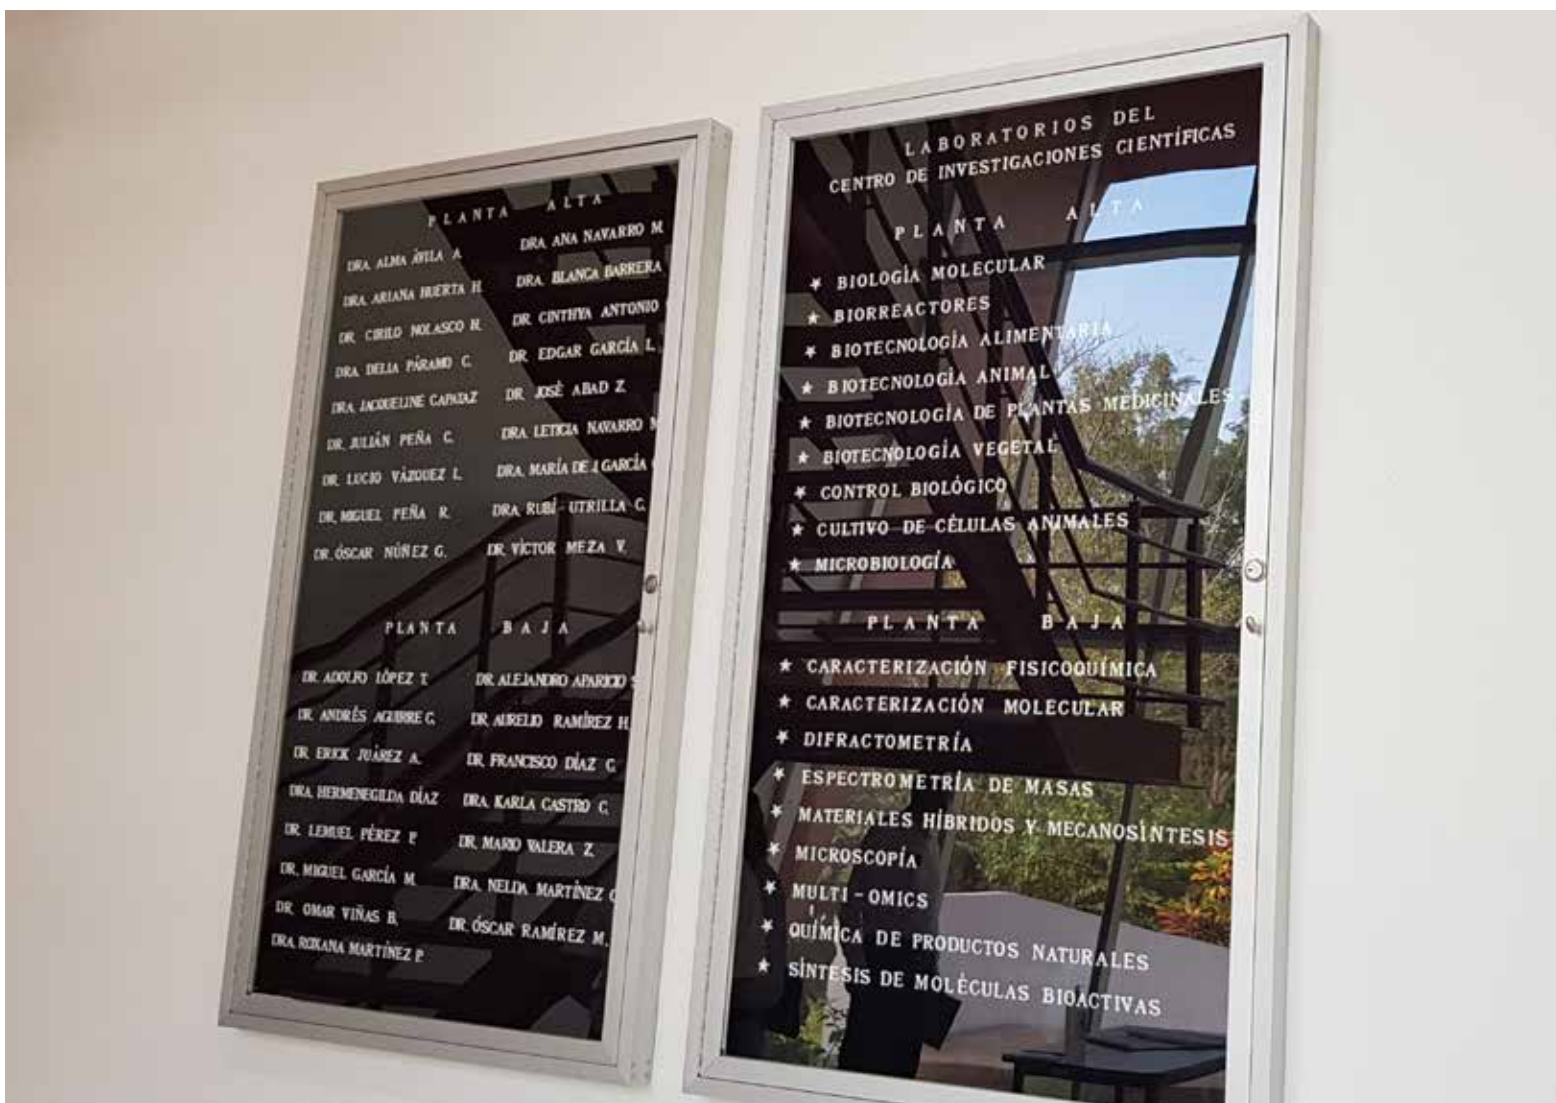 PLANTA ALTA
DRA. ALMA ÁVILA A.
DRA. ARIANA HUERTA H.
DR. CIRILO NOLASCO H.
DRA. DELIA PÁRAMO C.
DRA. JACQUELINE CAPATAZ
DR. JULIÁN PEÑA C.
DR. LUCIO VÁZQUEZ L.
DR. MIGUEL PEÑA R.
DR. ÓSCAR NÚÑEZ G.
DRA. ANA NAVARRO M
DRA. BLANCA BARRERA
DR. CINTHYA ANTONIO
DR. EDGAR GARCÍA L.
DR. JOSÉ ABAD Z.
DRA. LETICIA NAVARRO M
DRA. MARÍA DE J. GARCÍA
DRA. RUBÍ UTRILLA C.
DR. VÍCTOR MEZA V.
PLANTA BAJA
DR. ADOLFO LÓPEZ T.
DR. ANDRÉS AGUIRRE C.
DR. ERICK JUÁREZ A.
DRA. HERMENEGILDA DÍAZ
DR. LEMUEL PÉREZ P.
DR. MIGUEL GARCÍA M.
DR. OMAR VIÑAS B.
DRA. ROXANA MARTÍNEZ P.
DR. ALEJANDRO APARICIO S
DR. AURELIO RAMÍREZ H.
DR. FRANCISCO DÍAZ C.
DRA. KARLA CASTRO C.
DR. MARIO VALERA Z.
DRA. NELDA MARTÍNEZ
DR. ÓSCAR RAMÍREZ M.
LABORATORIOS DEL
CENTRO DE INVESTIGACIONES CIENTÍFICAS
PLANTA ALTA
★ BIOLOGÍA MOLECULAR
★ BIORREACTORES
★ BIOTECNOLOGÍA ALIMENTARIA
★ BIOTECNOLOGÍA ANIMAL
★ BIOTECNOLOGÍA DE PLANTAS MEDICINALES
★ BIOTECNOLOGÍA VEGETAL
★ CONTROL BIOLÓGICO
★ CULTIVO DE CÉLULAS ANIMALES
★ MICROBIOLOGÍA
PLANTA BAJA
★ CARACTERIZACIÓN FISICOQUÍMICA
★ CARACTERIZACIÓN MOLECULAR
★ DIFRACTOMETRÍA
★ ESPECTROMETRÍA DE MASAS
★ MATERIALES HÍBRIDOS Y MECANOSÍNTESIS
★ MICROSCOPÍA
★ MULTI-OMICS
★ QUÍMICA DE PRODUCTOS NATURALES
★ SÍNTESIS DE MOLÉCULAS BIOACTIVAS